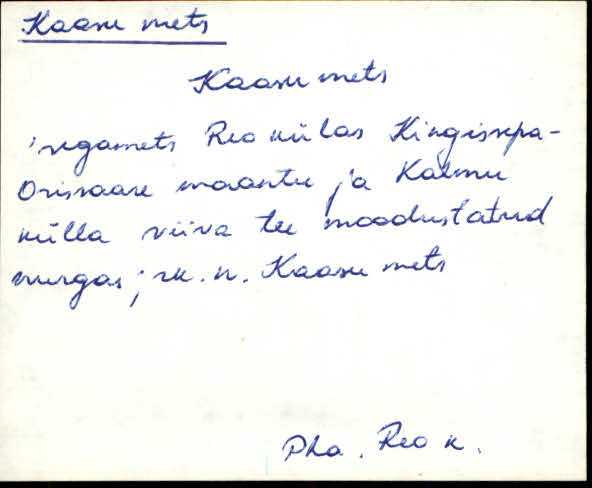 Kaasu mets
Kaasu mets
'segamets Reo külas Kingissepa-
Orissaare maantee ja Kalmu
külla viiva tee moodustatud
nurgas; rk. n. Kaasu mets
Pha. Reo k.